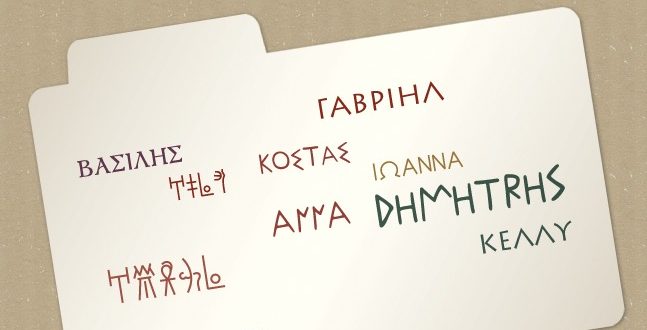 ΓΑΒΡΙΗΛ
ΒΑΣΙΛΗΣ
ΚΟΣΤΑΣ
ΙΩΑΝΝΑ
ΑΝΝΑ
ΔΗΜΗΤΡΗΣ
ΚΕΛΛΥ